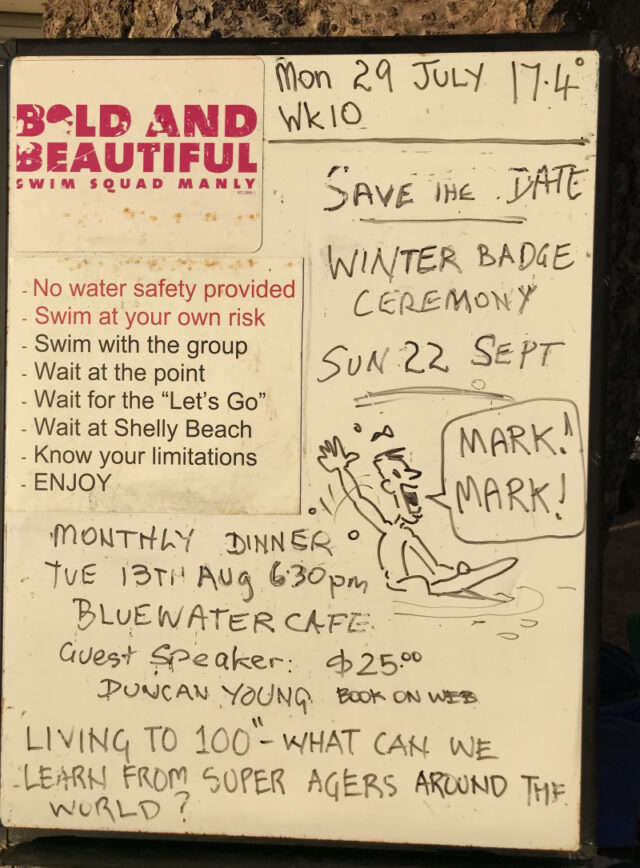 BOLD AND
BEAUTIFUL
SWIM SQUAD MANLY
Mon 29 JULY 17.4°
WK10
SAVE THE DATE
WINTER BADGE
CEREMONY
SUN 22 SEPT
- No water safety provided
- Swim at your own risk
- Swim with the group
- Wait at the point
- Wait for the “Let's Go”
- Wait at Shelly Beach
- Know your limitations
- ENJOY
MARK!
MARK!
MONTHLY DINNER
TUE 13TH AUG 6.30pm
BLUEWATER CAFE
Guest Speaker: $25.00
DUNCAN YOUNG BOOK ON WEB
LIVING TO 100" - WHAT CAN WE
LEARN FROM SUPER AGERS AROUND THE
WORLD?